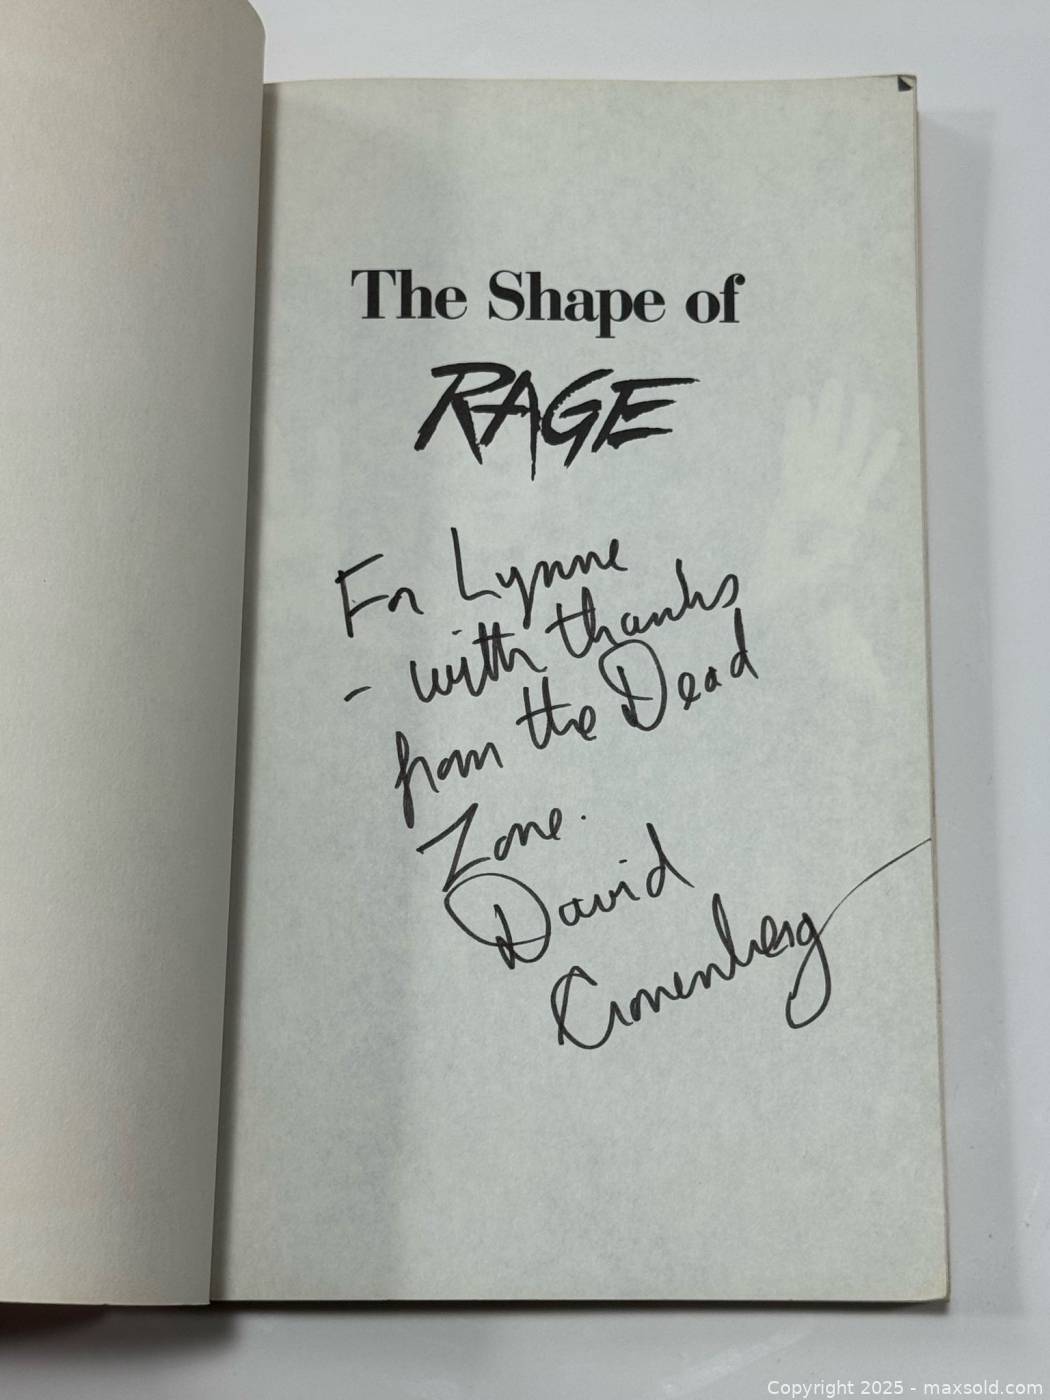 The Shape of
RAGE
For Lynne
- with thanks
from the Dead
Zone.
David
Cronenberg
Copyright 2025 - maxsold.com